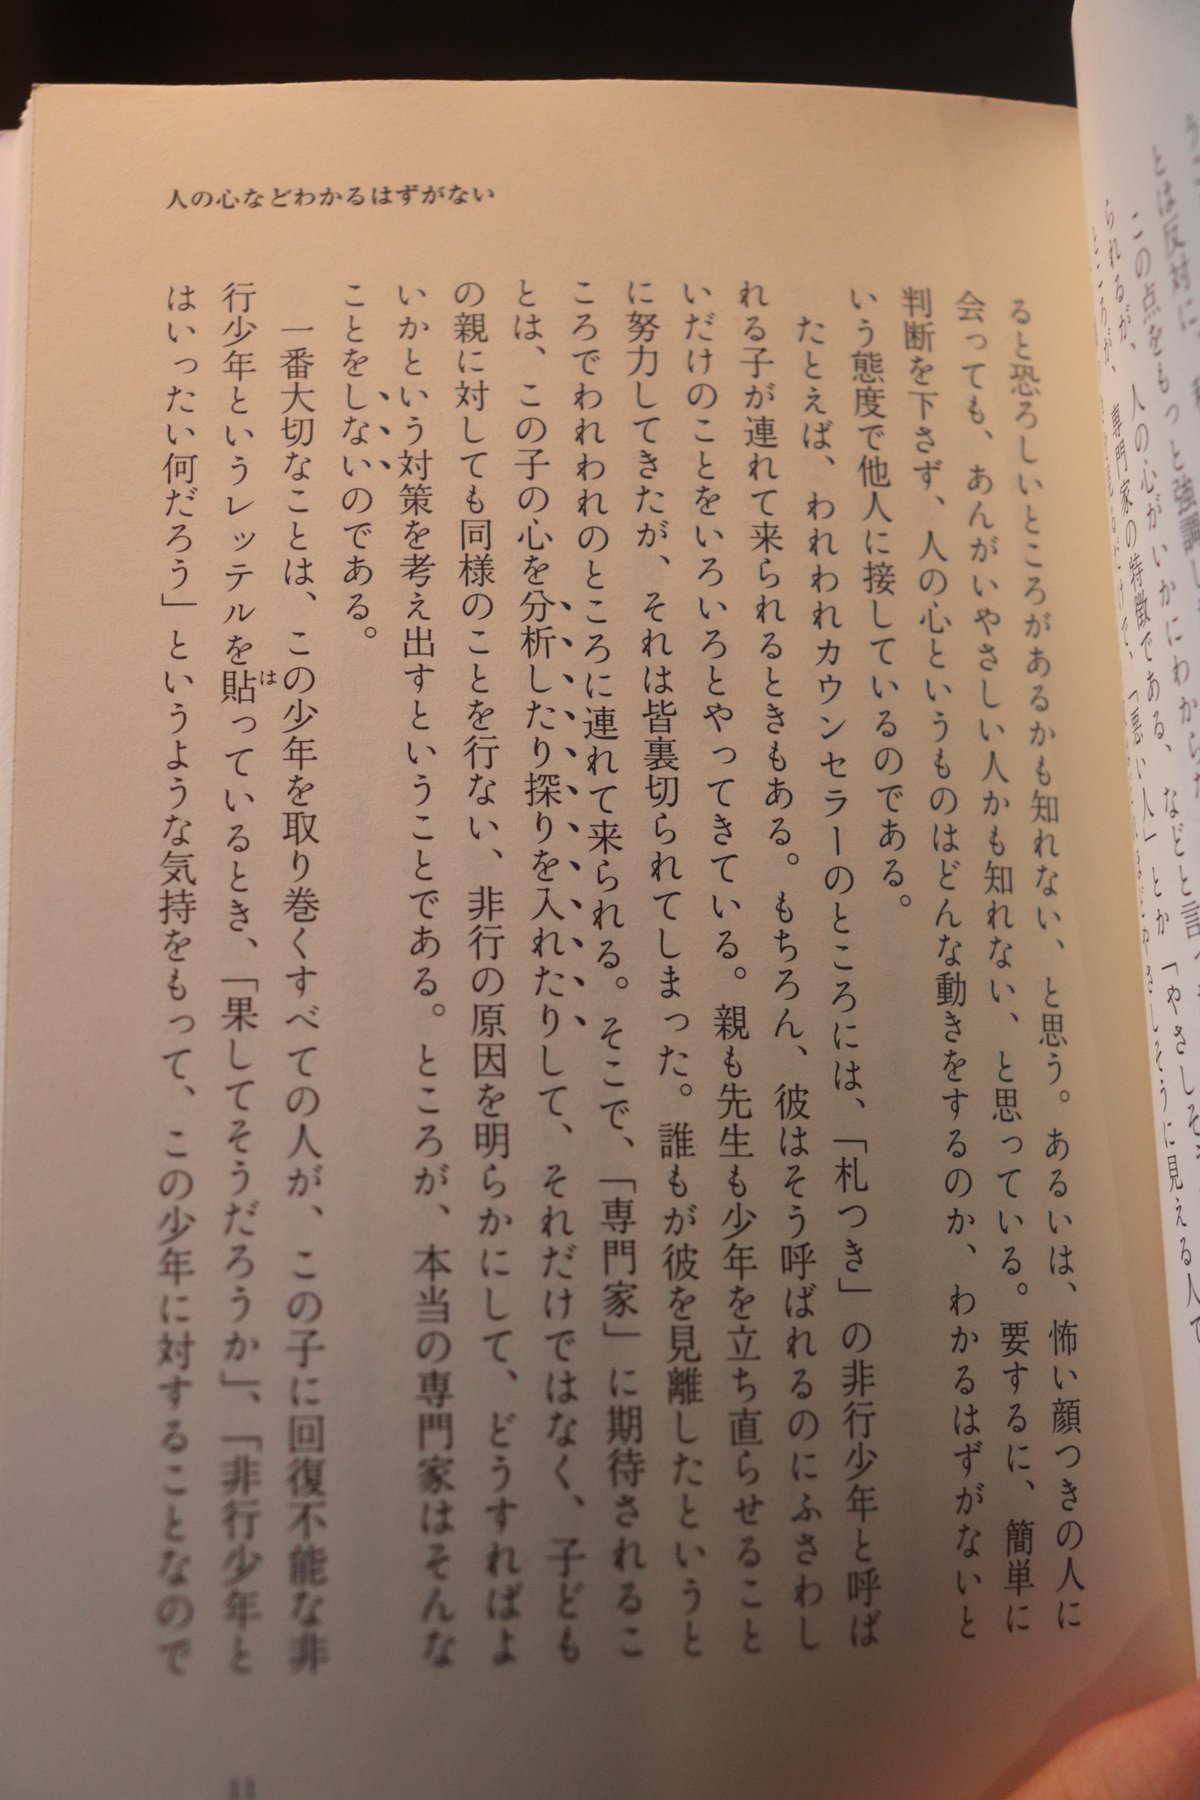 人の心などわかるはずがない
ると恐ろしいところがあるかも知れない、と思う。あるいは、怖い顔つきの人に
会っても、あんがいやさしい人かも知れない、と思っている。要するに、簡単に
判断を下さず、人の心というものはどんな動きをするのか、わかるはずがないと
いう態度で他人に接しているのである。
たとえば、われわれカウンセラーのところには、「札つき」の非行少年と呼ば
れる子が連れて来られるときもある。もちろん、彼はそう呼ばれるのにふさわし
いだけのことをいろいろとやってきている。親も先生も少年を立ち直らせること
に努力してきたが、それは皆裏切られてしまった。誰もが彼を見離したというと
ころでわれわれのところに連れて来られる。そこで、「専門家」に期待されるこ
とは、この子の心を分析したり探りを入れたりして、それだけではなく、子ども
の親に対しても同様のことを行ない、非行の原因を明らかにして、どうすればよ
いかという対策を考え出すということである。ところが、本当の専門家はそんな
ことをしないのである。
一番大切なことは、この少年を取り巻くすべての人が、この子に回復不能な非
行少年というレッテルを貼っているとき、「果してそうだろうか」、「非行少年と
はいったい何だろう」というような気持をもって、この少年に対することなので
は
11
この点をもっと強調し
られるが、人の心がいかにわからな
専門家の特徴である、などと言
「悪い人」とか「やさしそ